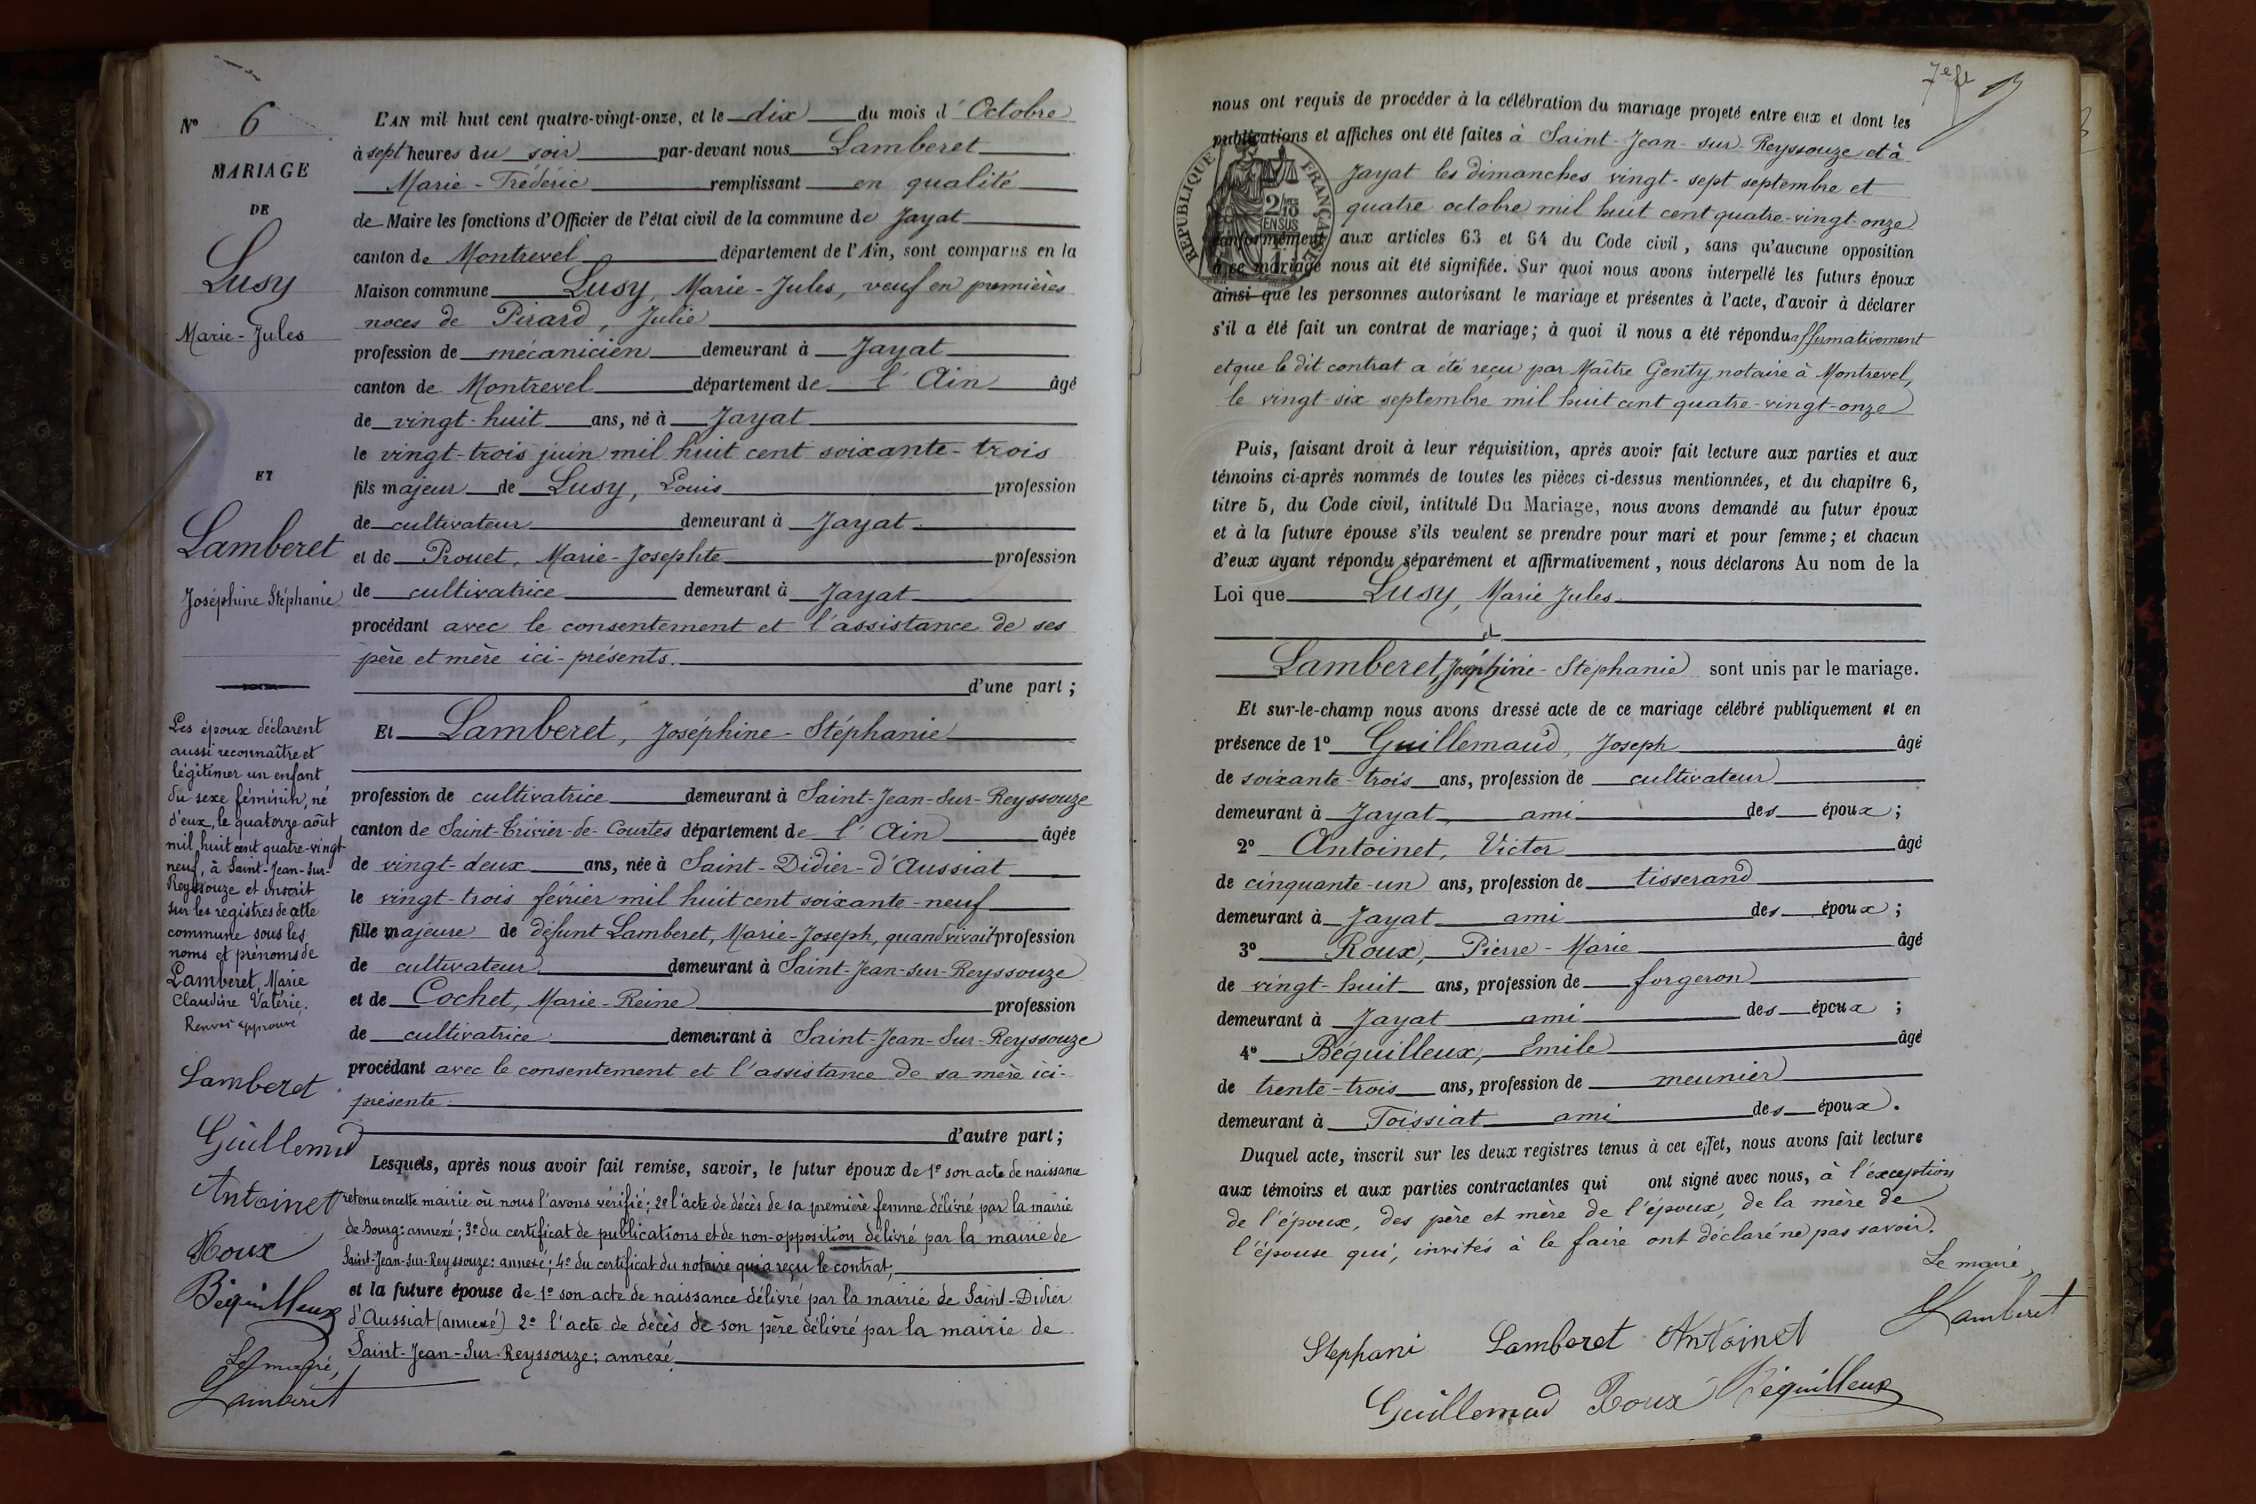 Nº 6
MARIAGE
DE
Lusy
Marie-Jules
ET
Lamberet
Joséphine Stéphanie
Les époux déclarent
aussi reconnaître et
légitimer un enfant
du sexe féminin, né
d'eux, le quatorze août
mil huit cent quatre-vingt-
neuf, à Saint-Jean-sur-
Reyssouze et inscrit
sur les registres de cette
commune sous les
noms et prénoms de
Lamberet, Marie
Claudine Valérie.
Renvoi approuvé
Lamberet
Guillemud
Antoinet
Roux
Béquilleux
Le maire,
Lamberet
L'AN mil huit cent quatre-vingt-onze, et le dix du mois d'Octobre
à sept heures du soir par-devant nous Lamberet
Marie-Frédéric remplissant en qualité
de Maire les fonctions d'Officier de l'état civil de la commune de Jayat
canton de Montrevel département de l'Ain, sont comparus en la
Maison commune Lusy, Marie-Jules, veuf en premières
noces de Pirard, Julie
profession de mécanicien demeurant à Jayat
canton de Montrevel département de l'Ain âgé
de vingt-huit ans, né à Jayat
le vingt-trois juin mil huit cent soixante-trois
fils majeur de Lusy, Louis profession
de cultivateur demeurant à Jayat
et de Prouet, Marie-Josephte profession
de cultivatrice demeurant à Jayat
procédant avec le consentement et l'assistance de ses
père et mère ici-présents.
d'une part ;
Et Lamberet, Joséphine-Stéphanie
profession de cultivatrice demeurant à Saint-Jean-sur-Reyssouze
canton de Saint-Trivier-de-Courtes département de l'Ain âgée
de vingt-deux ans, née à Saint-Didier-d'Aussiat
le vingt-trois février mil huit cent soixante-neuf
fille majeure de défunt Lamberet, Marie-Joseph, quand vivait profession
de cultivateur demeurant à Saint-Jean-sur-Reyssouze
et de Cochet, Marie-Reine profession
de cultivatrice demeurant à Saint-Jean-sur-Reyssouze
procédant avec le consentement et l'assistance de sa mère ici-
présente.
d'autre part ;
Lesquels, après nous avoir fait remise, savoir, le futur époux de 1º son acte de naissance
retenu en cette mairie où nous l'avons vérifié ; 2º l'acte de décès de sa première femme délivré par la mairie
de Bourg : annexé ; 3º du certificat de publications et de non-opposition délivré par la mairie de
Saint-Jean-sur-Reyssouze : annexé ; 4º du certificat du notaire qui a reçu le contrat,
et la future épouse de 1º son acte de naissance délivré par la mairie de Saint-Didier
d'Aussiat (annexé) 2º l'acte de décès de son père délivré par la mairie de
Saint-Jean-sur-Reyssouze : annexé
7e ft
nous ont requis de procéder à la célébration du mariage projeté entre eux et dont les
publications et affiches ont été faites à Saint-Jean-sur-Reyssouze et à
Jayat les dimanches vingt-sept septembre et
quatre octobre mil huit cent quatre-vingt-onze
RÉPUBLIQUE FRANÇAISE
2/10 EN SUS
conformément aux articles 63 et 64 du Code civil, sans qu'aucune opposition
à ce mariage nous ait été signifiée. Sur quoi nous avons interpellé les futurs époux
ainsi que les personnes autorisant le mariage et présentes à l'acte, d'avoir à déclarer
s'il a été fait un contrat de mariage ; à quoi il nous a été répondu affirmativement
et que le dit contrat a été reçu par Maître Genty, notaire à Montrevel,
le vingt-six septembre mil huit cent quatre-vingt-onze
Puis, faisant droit à leur réquisition, après avoir fait lecture aux parties et aux
témoins ci-après nommés de toutes les pièces ci-dessus mentionnées, et du chapitre 6,
titre 5, du Code civil, intitulé Du Mariage, nous avons demandé au futur époux
et à la future épouse s'ils veulent se prendre pour mari et pour femme ; et chacun
d'eux ayant répondu séparément et affirmativement, nous déclarons Au nom de la
Loi que Lusy, Marie Jules
et
Lamberet, Joséphine-Stéphanie sont unis par le mariage.
Et sur-le-champ nous avons dressé acte de ce mariage célébré publiquement et en
présence de 1º Guillemaud, Joseph âgé
de soixante-trois ans, profession de cultivateur
demeurant à Jayat ami des époux ;
2º Antoinet, Victor âgé
de cinquante-un ans, profession de tisserand
demeurant à Jayat ami des époux ;
3º Roux, Pierre-Marie âgé
de vingt-huit ans, profession de forgeron
demeurant à Jayat ami des époux ;
4º Béquilleux, Emile âgé
de trente-trois ans, profession de meunier
demeurant à Foissiat ami des époux.
Duquel acte, inscrit sur les deux registres tenus à cet effet, nous avons fait lecture
aux témoins et aux parties contractantes qui ont signé avec nous, à l'exception
de l'époux, des père et mère de l'époux, de la mère de
l'épouse qui, invités à le faire ont déclaré ne pas savoir.
Le maire,
Lamberet
Stephani Lamberet Antoinet
Guillemud Roux Béquilleux